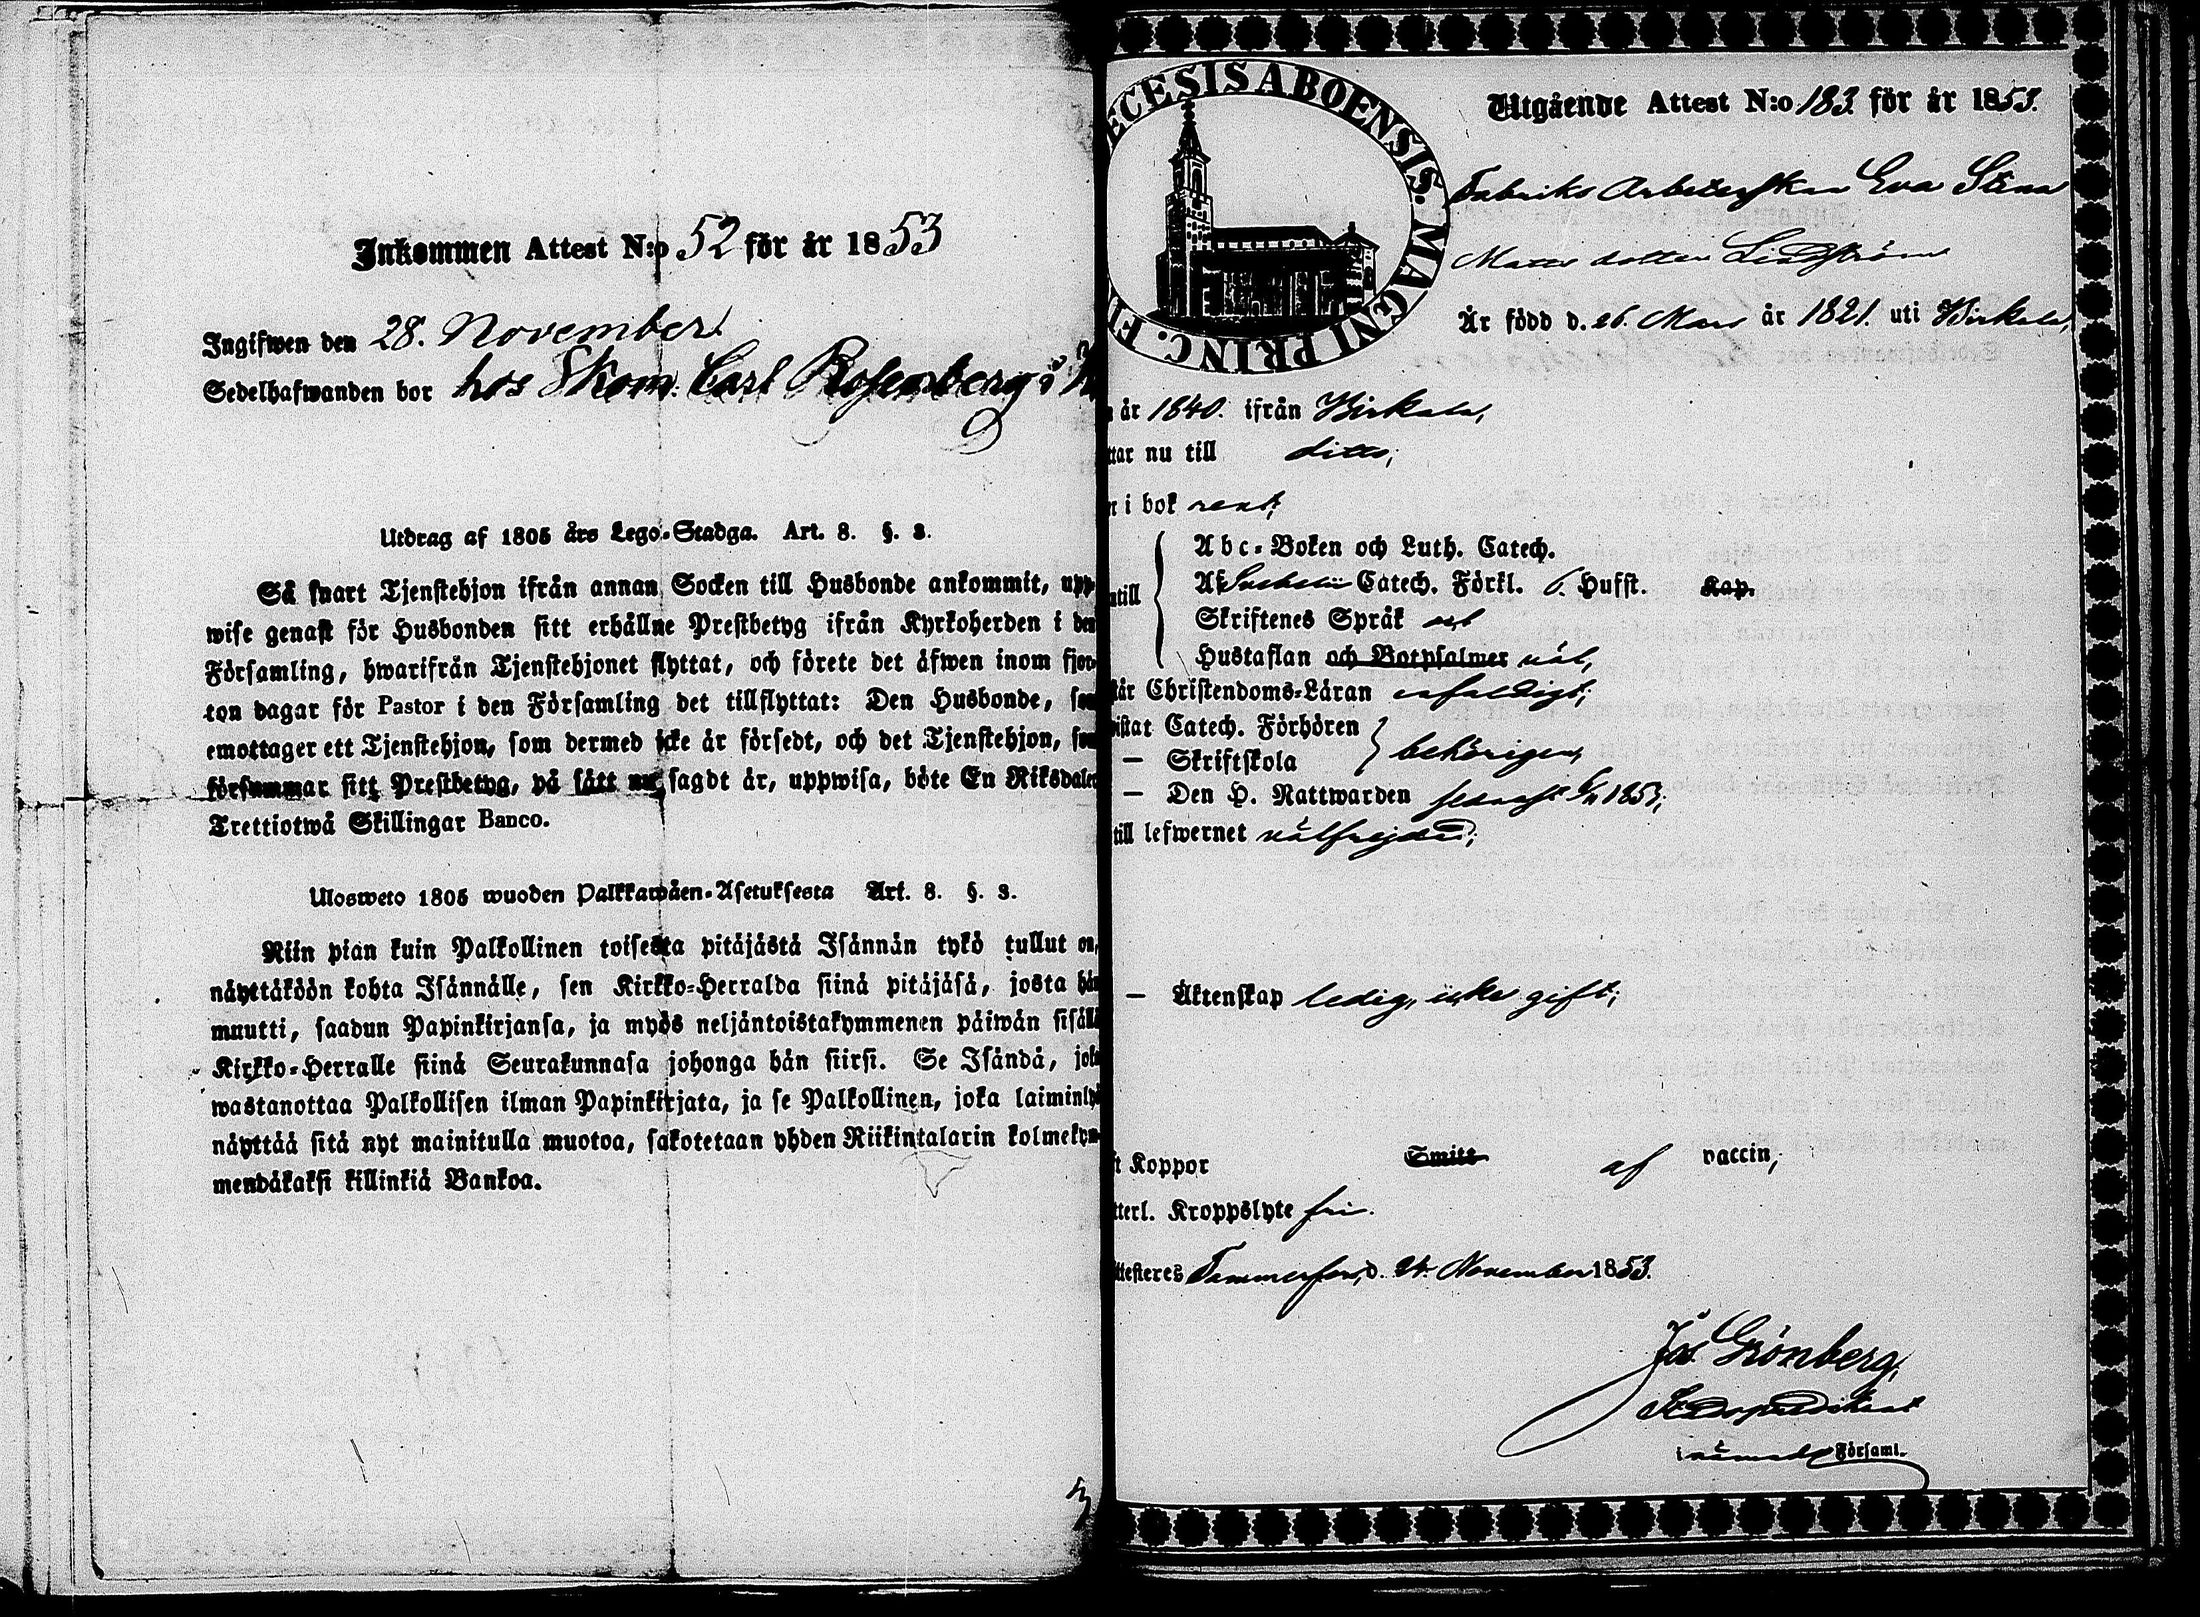 Inkommen Attest N:o 52 för år 1853
Ingifwen den 28. November
Sedelhafwanden bor hos Skom. Carl Rosenberg i
Utdrag af 1805 års Lego-Stadga. Art. 8. §. 3.
Så snart Tjenstehjon ifrån annan Socken till Husbonde ankommit, upp-
wise genast för Husbonden sitt erhållne Prestbetyg ifrån Kyrkoherden i den
Församling, hwarifrån Tjenstehjonet flyttat, och förete det äfwen inom fjor-
ton dagar för Pastor i den Församling det tillflyttat: Den Husbonde, som
emottager ett Tjenstehjon, som dermed icke är försedt, och det Tjenstehjon, som
försummar sitt Prestbetyg, på sätt nu sagdt är, uppwisa, böte En Riksdaler
Trettiotwå Skillingar Banco.
Ulosweto 1805 wuoden Palkkawäen-Asetuksesta Art. 8. §. 3.
Niin pian kuin Palkollinen toisesta pitäjästä Isännän tykö tullut on,
näyttäköön kohta Isännälle, sen Kirkko-Herralda siinä pitäjäsä, josta hän
muutti, saadun Papinkirjansa, ja myös neljäntoistakymmenen päiwän sisällä
Kirkko-Herralle siinä Seurakunnasa johonga hän siirsi. Se Isändä, joka
wastanottaa Palkollisen ilman Papinkirjata, ja se Palkollinen, joka laiminlyö
näyttää sitä nyt mainitulla muotoa, sakotetaan yhden Riikintalarin kolmekym-
mendäkaksi killinkiä Bankoa.
ECESIS ABOENSIS. MAGNI PRINC. FI
Utgående Attest N:o 183 för år 1853.
Fabriks Arbeterskan Eva Stina
Matts dotter Lindström
Är född d. 26. Mars år 1821. uti Birkala,
år 1840. ifrån Birkala,
ttar nu till ditto;
i bok rent;
Abc-Boken och Luth. Catech.
Af Catech. Förkl. 6. Hufst. Kap.
till
Skriftenes Språk
Hustaflan och Botpsalmer väl,
står Christendoms-Läran enfaldigt;
istat Catech. Förhören
— Skriftskola
behörigen,
— Den H. Nattwarden senast 1853;
till lefwernet välfrejdad;
— Äktenskap ledig, icke gift;
t Koppor Smitt af vaccin,
tterl. Kroppslyte fri.
ttesteres Tammerfors, d. 24. November 1853.
Jos. Grönberg,
i nämnde Församl.